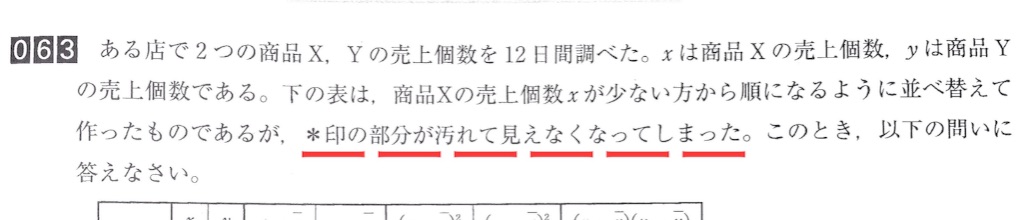 063 ある店で2つの商品X，Yの売上個数を12日間調べた。xは商品Xの売上個数，yは商品Y
の売上個数である。下の表は，商品Xの売上個数xが少ない方から順になるように並べ替えて
作ったものであるが，＊印の部分が汚れて見えなくなってしまった。このとき，以下の問いに
答えなさい。